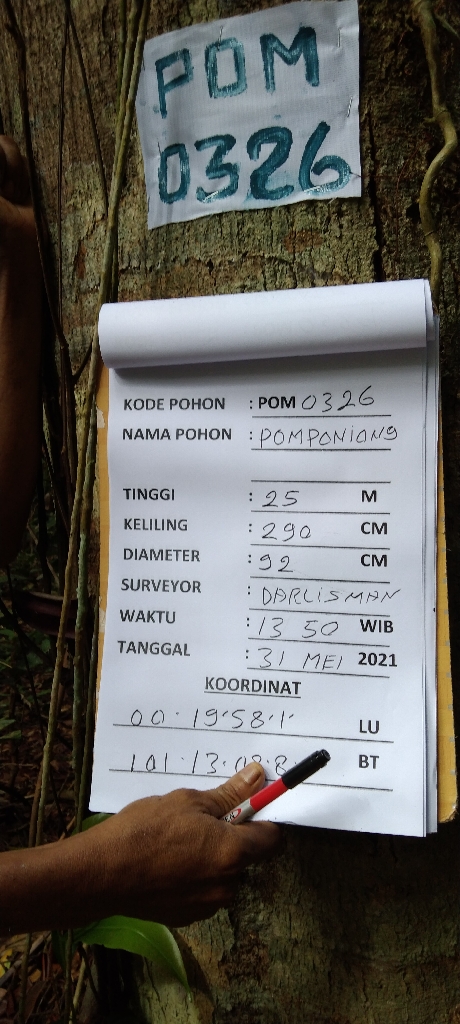 POM
0326
KODE POHON : POM 0326
NAMA POHON : POMPONIONG
TINGGI : 25 M
KELILING : 290 CM
DIAMETER : 92 CM
SURVEYOR : DARLISMAN
WAKTU : 13 50 WIB
TANGGAL : 31 MEI 2021
KOORDINAT
00.19.58.1 LU
101.13.08.8 BT